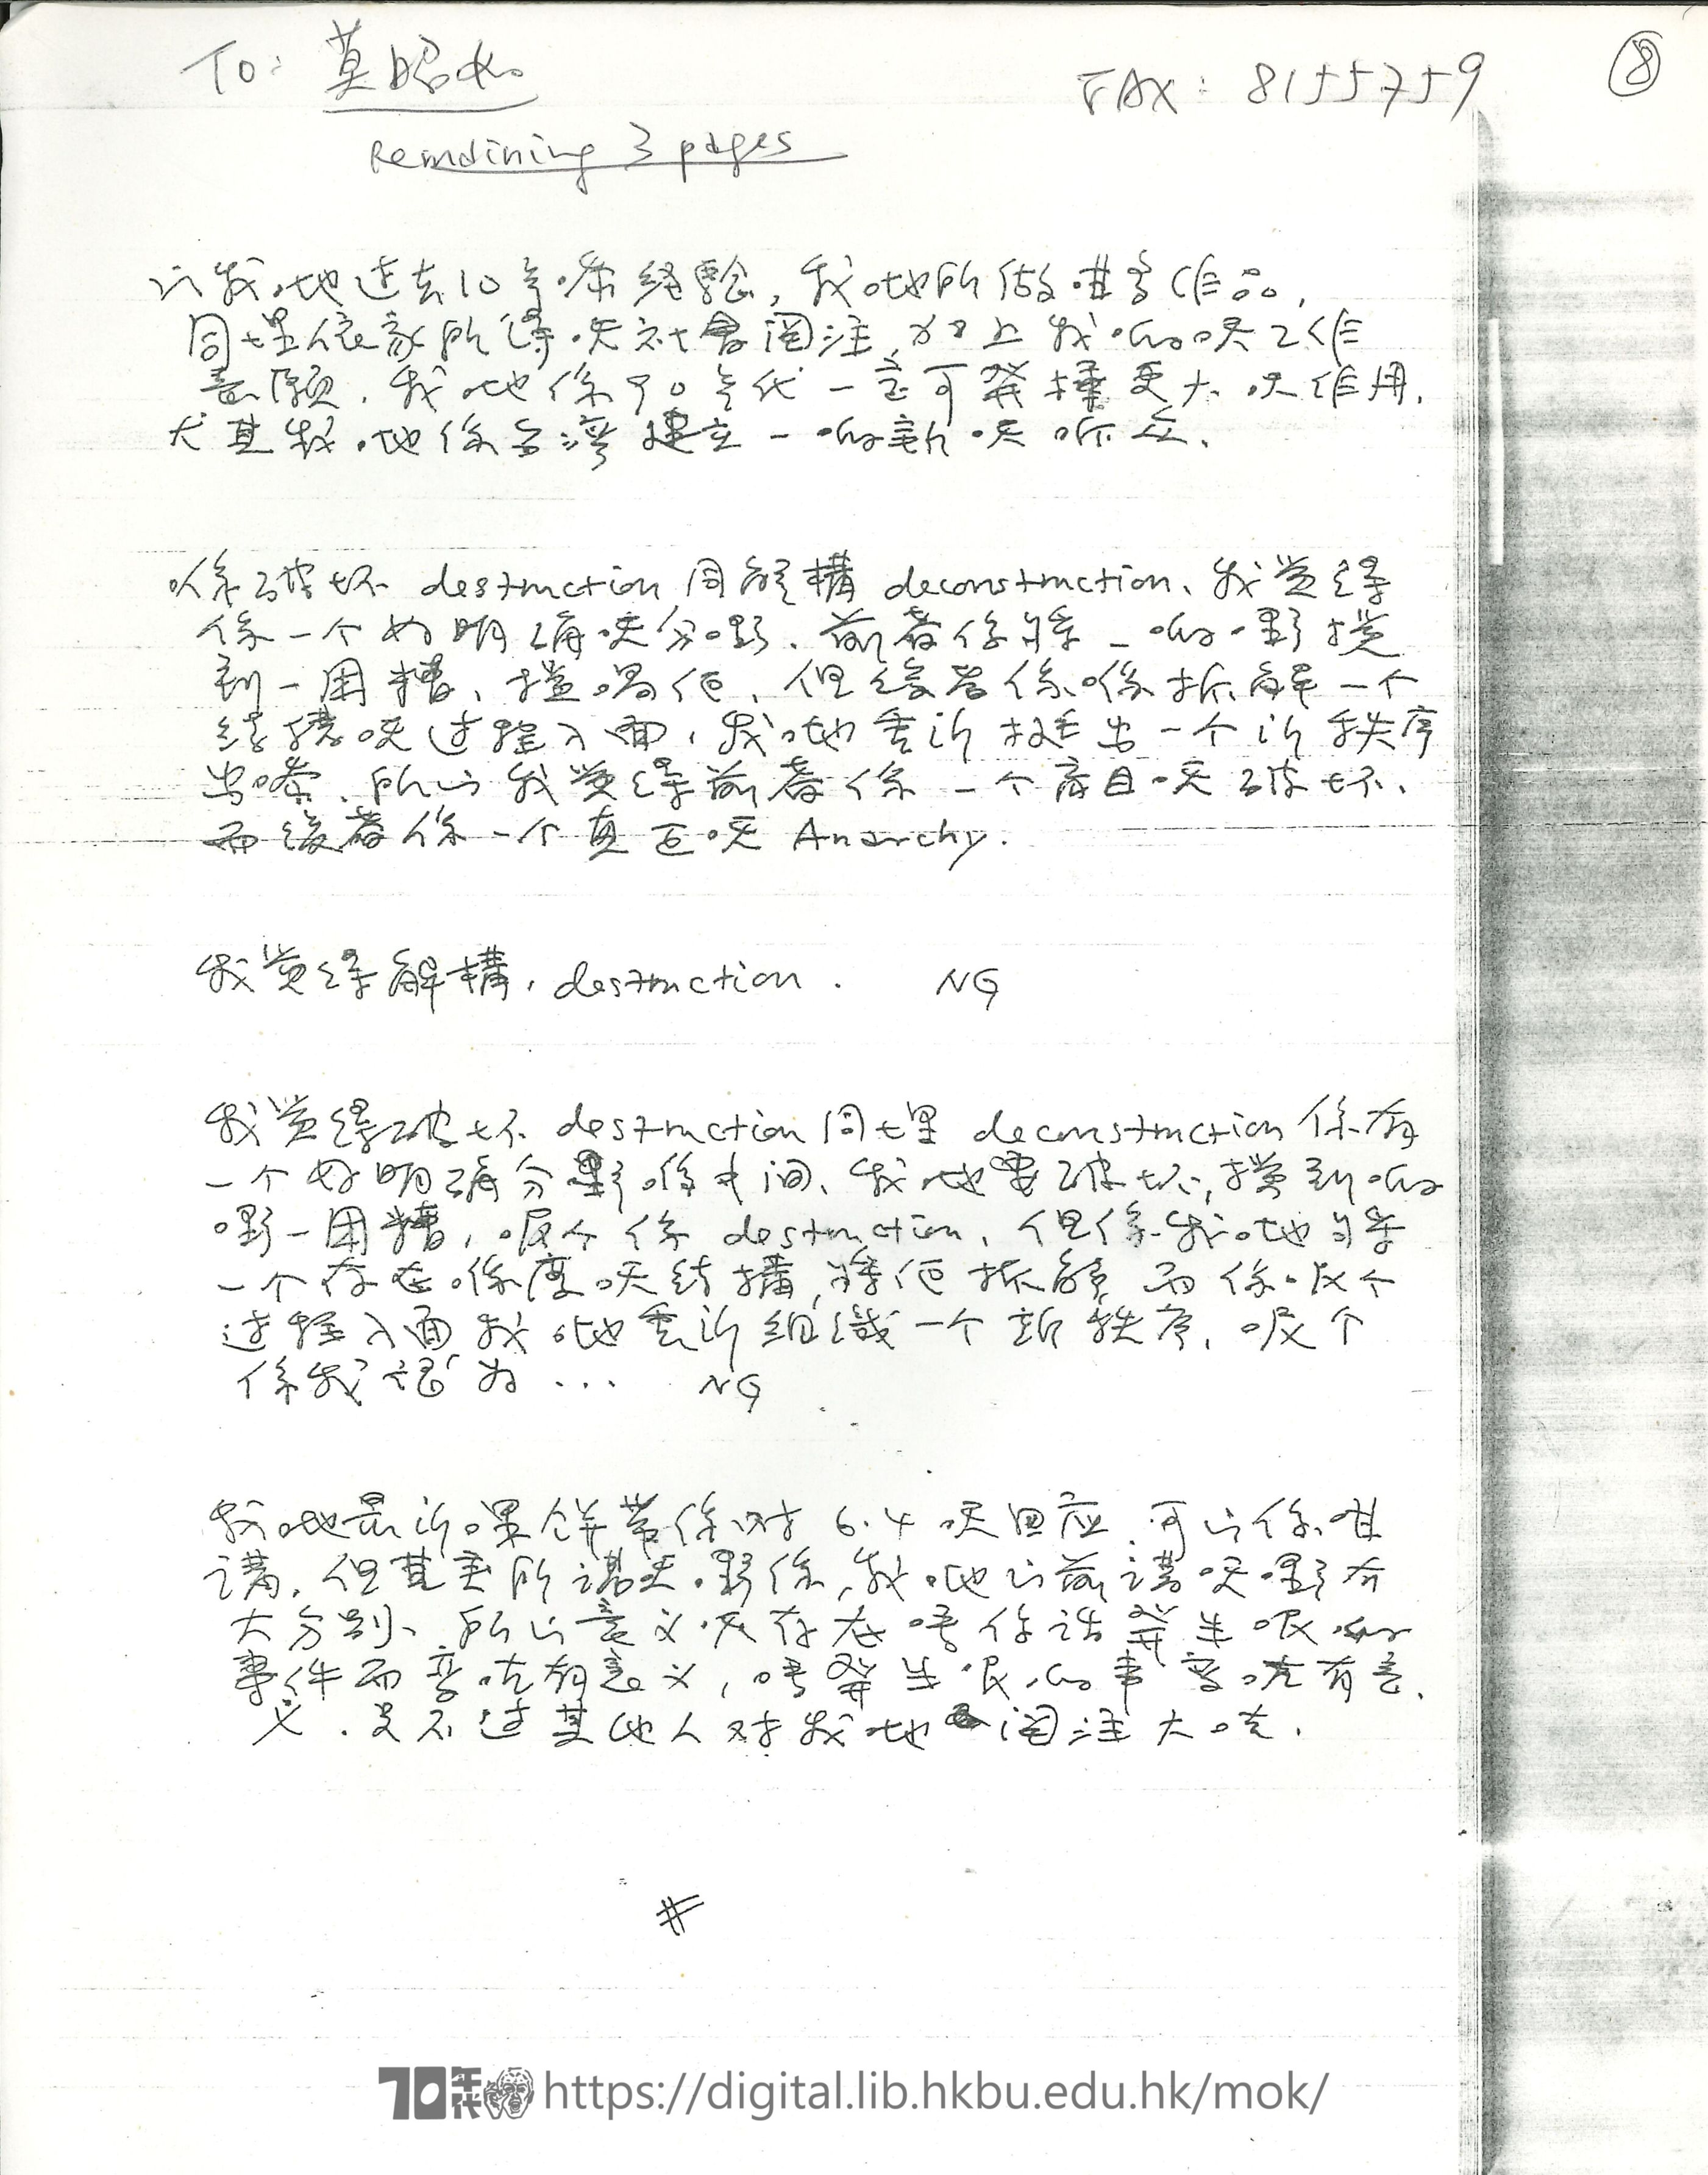 To: 莫昭如
FAX: 8155759
⑧
Remaining 3 pages
以我哋过去10年嚟经驗, 我哋所做咁多作品,
同埋依家所得嘅社會関注, 加上我哋嘅工作
意願, 我哋係90年代一定可發揮更大嘅作用,
尤其我哋係台湾建立一啲新嘅呼应.
喺破坏 destruction 同解構 deconstruction、我覚得
係一个好明确嘅分野. 前者係将一啲嘢搅
到一困糟, 搅喎佢, 但後者係喺拆解一个
结構嘅过程入面, 我哋重新担出一个新秩序
出嚟. 所以我覚得前者係一个盲目嘅破坏.
而後者係一个真正嘅 Anarchy.
我覚得解構, destruction. NG
我覚得破坏 destruction 同埋 deconstruction 係有
一个好明确分野喺中间、我哋要破坏, 搅到啲
嘢一困糟, 呢个係 destruction, 但係我哋将
一个存在喺度嘅结構, 将佢拆解, 而係呢个
过程入面我哋重新组織一个新秩序, 呢个
係我認为... NG
我哋最新㗎錄影帶係对 6.4 嘅回应, 可以係咁
講, 但其实所講嘅嘢係, 我哋以前講嘅嘢冇
大分别、所以意义嘅存在唔係話發生呢啲
事件而变咗有意义, 唔發生呢啲事变咗冇意
义. 只不过其他人对我哋関注大咗.
#
70年代 https://digital.lib.hkbu.edu.hk/mok/